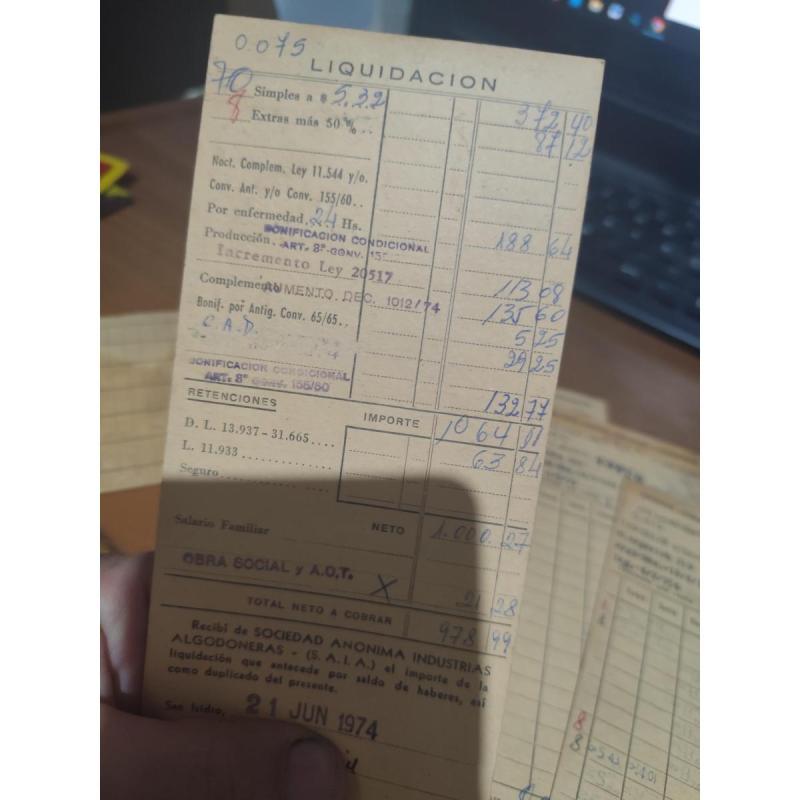 0.075
LIQUIDACION
70 Simples a $ 5.32 372 40
8 Extras más 50 %.. 87 12
Noct. Complem. Ley 11.544 y/o.
Conv. Ant. y/o Conv. 155/60..
Por enfermedad. 24 Hs.
Producción. 188 64
BONIFICACION CONDICIONAL
ART. 8º CONV. 15
Incremento Ley 20517
Complemento 113 08
AUMENTO. DEC. 1012/74 135 60
Bonif. por Antig. Conv. 65/65.. 5 25
C.A.D. 29 25
BONIFICACION CONDICIONAL
ART. 8º CONV. 155/60 132 77
RETENCIONES
IMPORTE 1064 11
D. L. 13.937 - 31.665.... 63 84
L. 11.933
Seguro
Salario Familiar NETO 1.000.27
OBRA SOCIAL y A.O.T. X 21 28
TOTAL NETO A COBRAR 978 99
Recibí de SOCIEDAD ANONIMA INDUSTRIAS
ALGODONERAS - (S.A.I.A.) el importe de la
liquidación que antecede por saldo de haberes, así
como duplicado del presente.
San Isidro, 21 JUN 1974
8
8